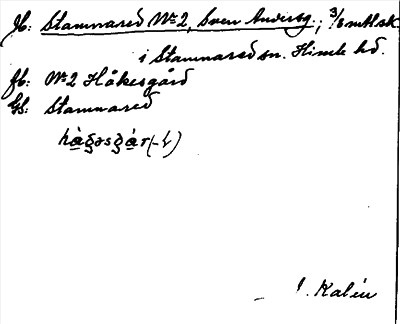 Jb: Stamnared No 2, Sven Andersg.; 3/8 mtl sk.
i Stamnared sn. Himle hd.
fb: No 2 Håkesgård
GS: Stamnared
J. Kalén